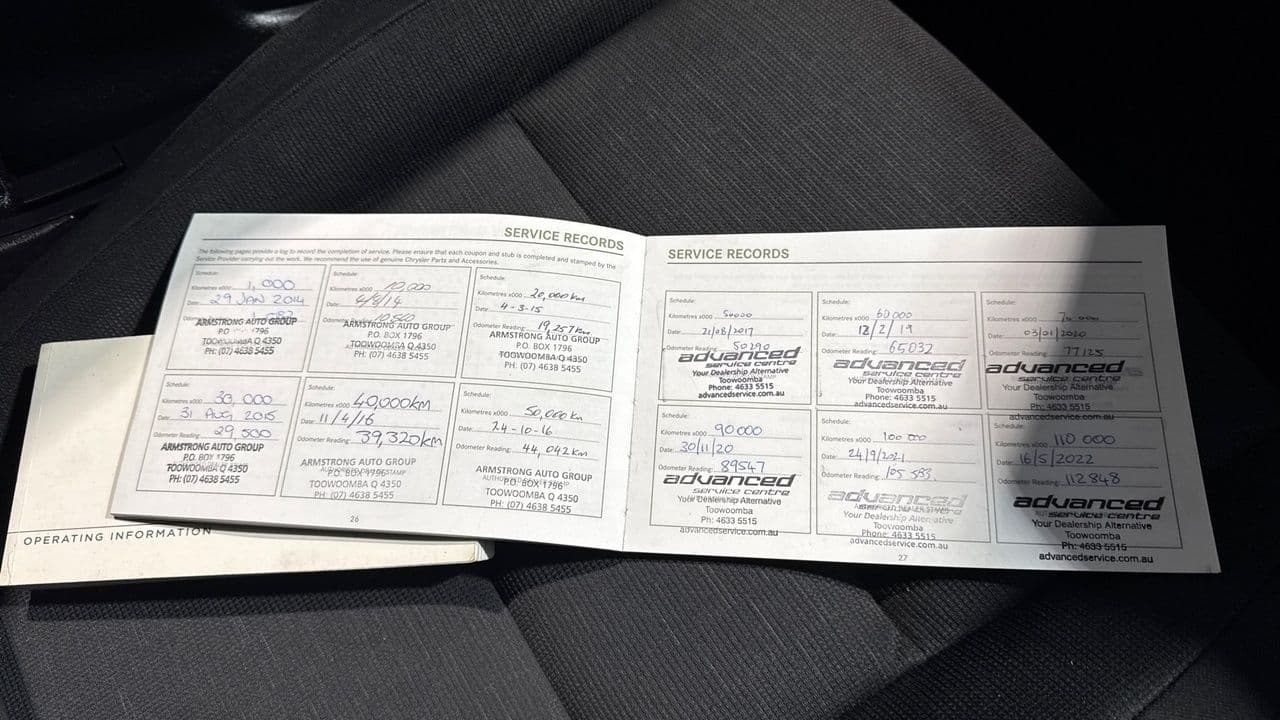 SERVICE RECORDS
The following pages provide a log to record the completion of service. Please ensure that each coupon and stub is completed and stamped by the
Service Provider carrying out the work. We recommend the use of genuine Chrysler Parts and Accessories.
Schedule:
Kilometres x000 1,000
Date: 29 JAN 2014
ARMSTRONG AUTO GROUP
P.O. 1796
TOOWOOMBA Q 4350
PH: (07) 4638 5455
Schedule:
Kilometres x000 10,000
Date:
Odometer Reading: 10,500
ARMSTRONG AUTO GROUP
P.O. BOX 1796
TOOWOOMBA Q 4350
PH: (07) 4638 5455
Schedule:
Kilometres x000 20,000 km
Date: 4-3-15
Odometer Reading: 19,257 km
ARMSTRONG AUTO GROUP
P.O. BOX 1796
TOOWOOMBA Q 4350
PH: (07) 4638 5455
Schedule:
Kilometres x000 30,000
Date: 31 AUG 2015
Odometer Reading: 29,500
ARMSTRONG AUTO GROUP
P.O. BOX 1796
TOOWOOMBA Q 4350
PH: (07) 4638 5455
Schedule:
Kilometres x000 40,000km
Date: 11/4/16
Odometer Reading: 39,320km
ARMSTRONG AUTO GROUP
P.O. BOX 1796
TOOWOOMBA Q 4350
PH: (07) 4638 5455
Schedule:
Kilometres x000 50,000 km
Date: 24-10-16
Odometer Reading: 44,042km
ARMSTRONG AUTO GROUP
P.O. BOX 1796
TOOWOOMBA Q 4350
PH: (07) 4638 5455
26
SERVICE RECORDS
Schedule:
Kilometres x000 50000
Date: 21/08/2017
Odometer Reading: 50290
advanced
service centre
Your Dealership Alternative
Toowoomba
Phone: 4633 5515
advancedservice.com.au
Schedule:
Kilometres x000 60000
Date: 12/2/19
Odometer Reading: 65032
advanced
service centre
Your Dealership Alternative
Toowoomba
Phone: 4633 5515
advancedservice.com.au
Schedule:
Kilometres x000
Date: 03/01/2020
Odometer Reading: 77125
advanced
service centre
Your Dealership Alternative
Toowoomba
Ph: 4633 5515
advancedservice.com.au
Schedule:
Kilometres x000 90000
Date: 30/11/20
Odometer Reading: 89547
advanced
service centre
Your Dealership Alternative
Toowoomba
Ph: 4633 5515
advancedservice.com.au
Schedule:
Kilometres x000 100 000
Date: 24/9/2021
Odometer Reading: 105 583
advanced
service centre
Your Dealership Alternative
Toowoomba
Phone: 4633 5515
advancedservice.com.au
Kilometres x000 110 000
Date: 16/5/2022
Odometer Reading: 112848
advanced
service centre
Your Dealership Alternative
Toowoomba
Ph: 4633 5515
advancedservice.com.au
27
OPERATING INFORMATION